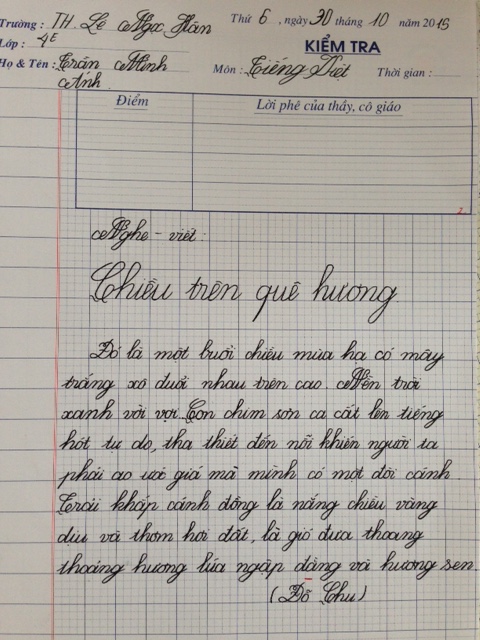 Trường : TH. Lê Ngọc Hân Thứ 6, ngày 30 tháng 10 năm 2015
Lớp : 4E KIỂM TRA
Họ & Tên : Trần Minh Môn : Tiếng Việt Thời gian :
Ánh
Điểm Lời phê của thầy, cô giáo
Nghe - viết :
Chiều trên quê hương
Đó là một buổi chiều mùa hạ có mây
trắng xô đuổi nhau trên cao. Nền trời
xanh vời vợi. Con chim sơn ca cất lên tiếng
hót tự do, tha thiết đến nỗi khiến người ta
phải ao ước giá mà mình có một đôi cánh.
Trải khắp cánh đồng là nắng chiều vàng
dịu và thơm hơi đất, là gió đưa thoang
thoảng hương lúa ngập đầng và hương sen.
(Đỗ Chu)